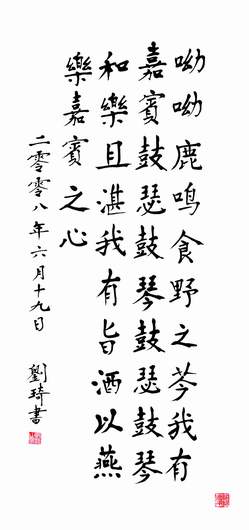 呦呦鹿鸣食野之芩我有
嘉賓鼓瑟鼓琴鼓瑟鼓琴
和樂且湛我有旨酒以燕
樂嘉賓之心
二零零八年六月十九日
劉琦書